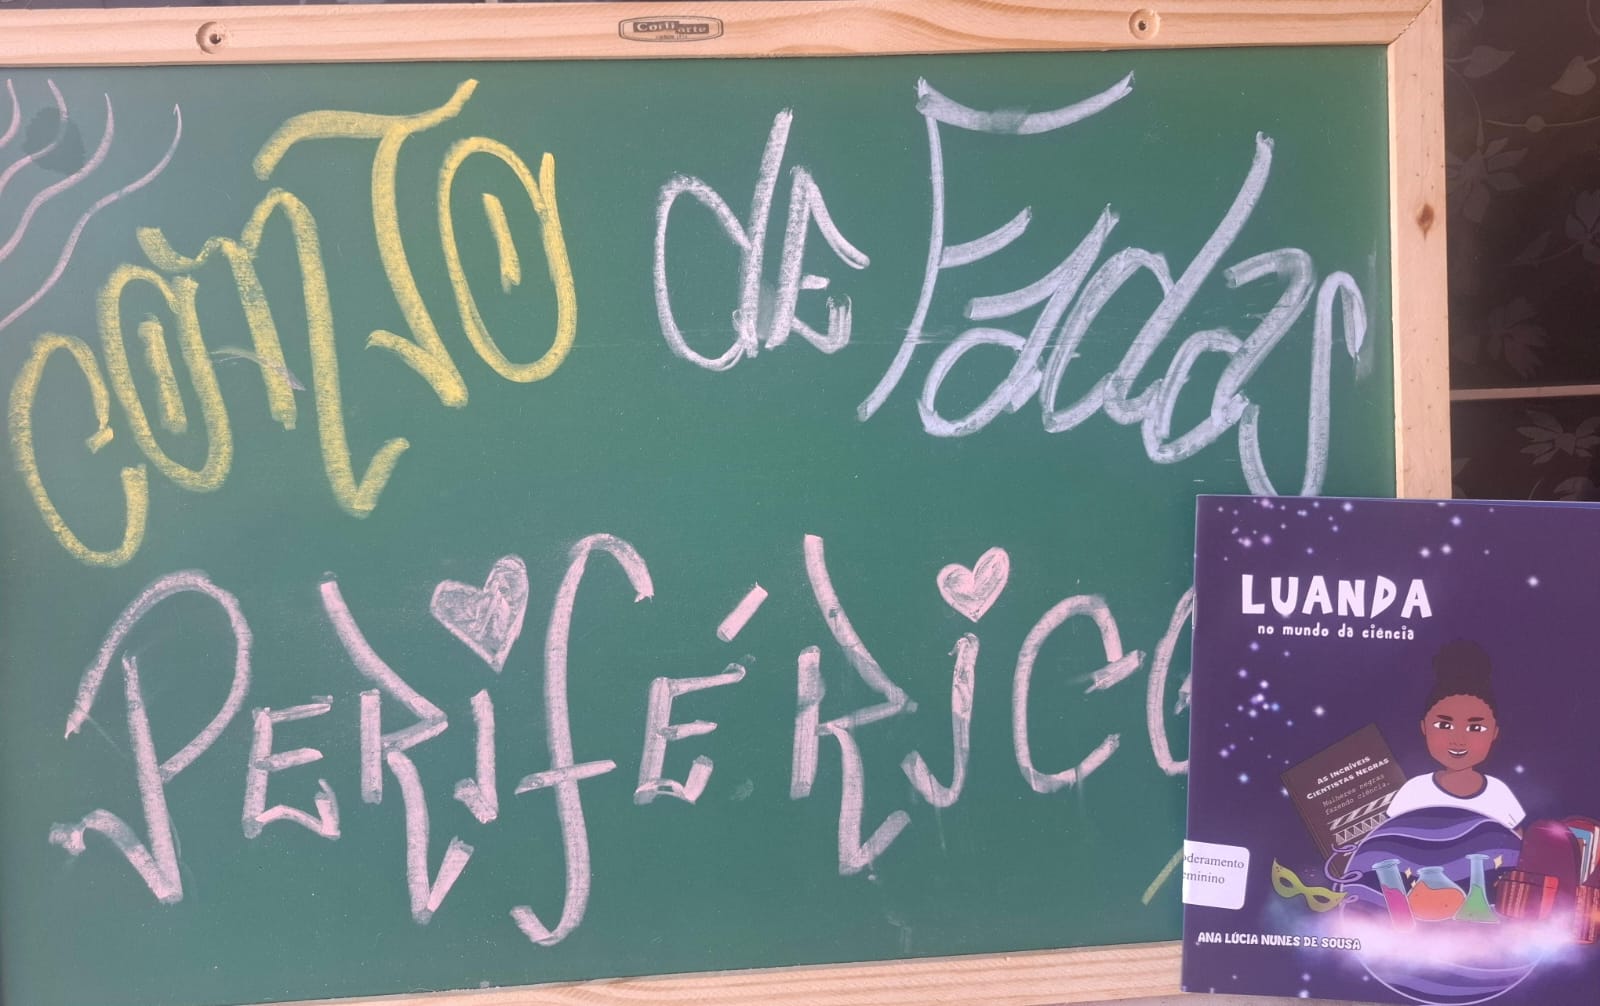 Corti arte
CONTO de Fadas
PERIFÉRICO
LUANDA
no mundo da ciência
AS INCRÍVEIS
CIENTISTAS NEGRAS
Mulheres negras
fazendo ciência.
oderamento
eminino
ANA LÚCIA NUNES DE SOUSA